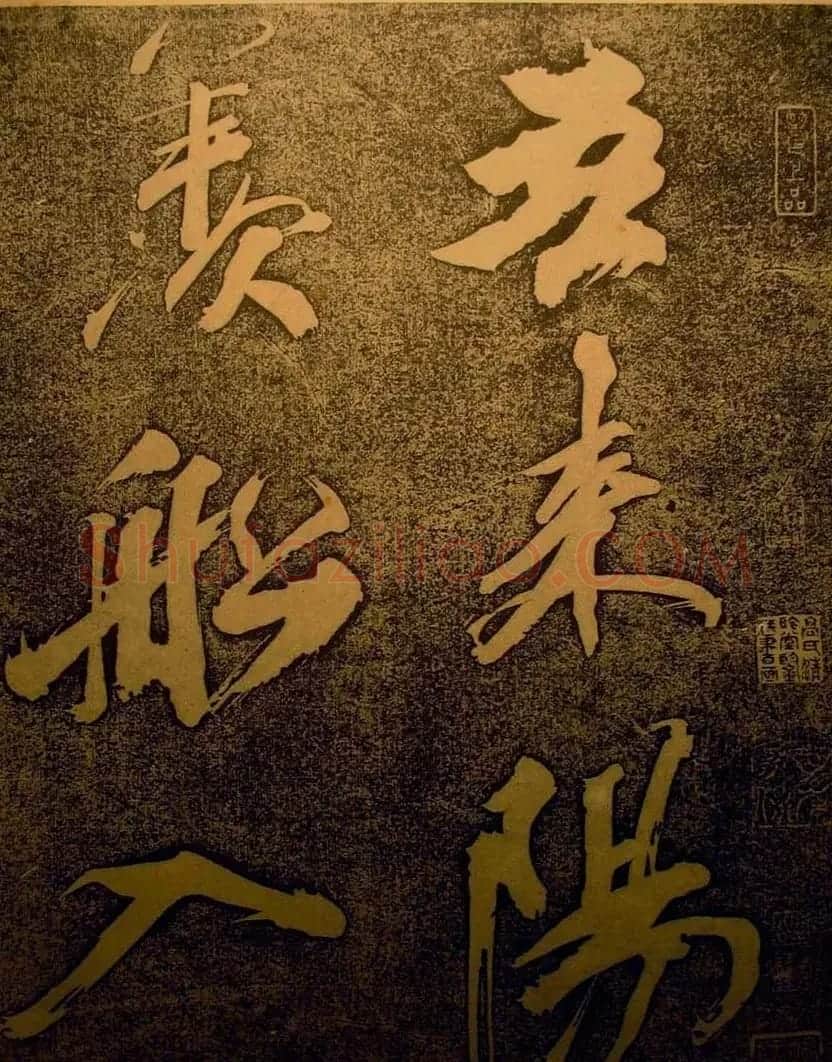 吾来陽
羨船入
Shufaziliao.COM